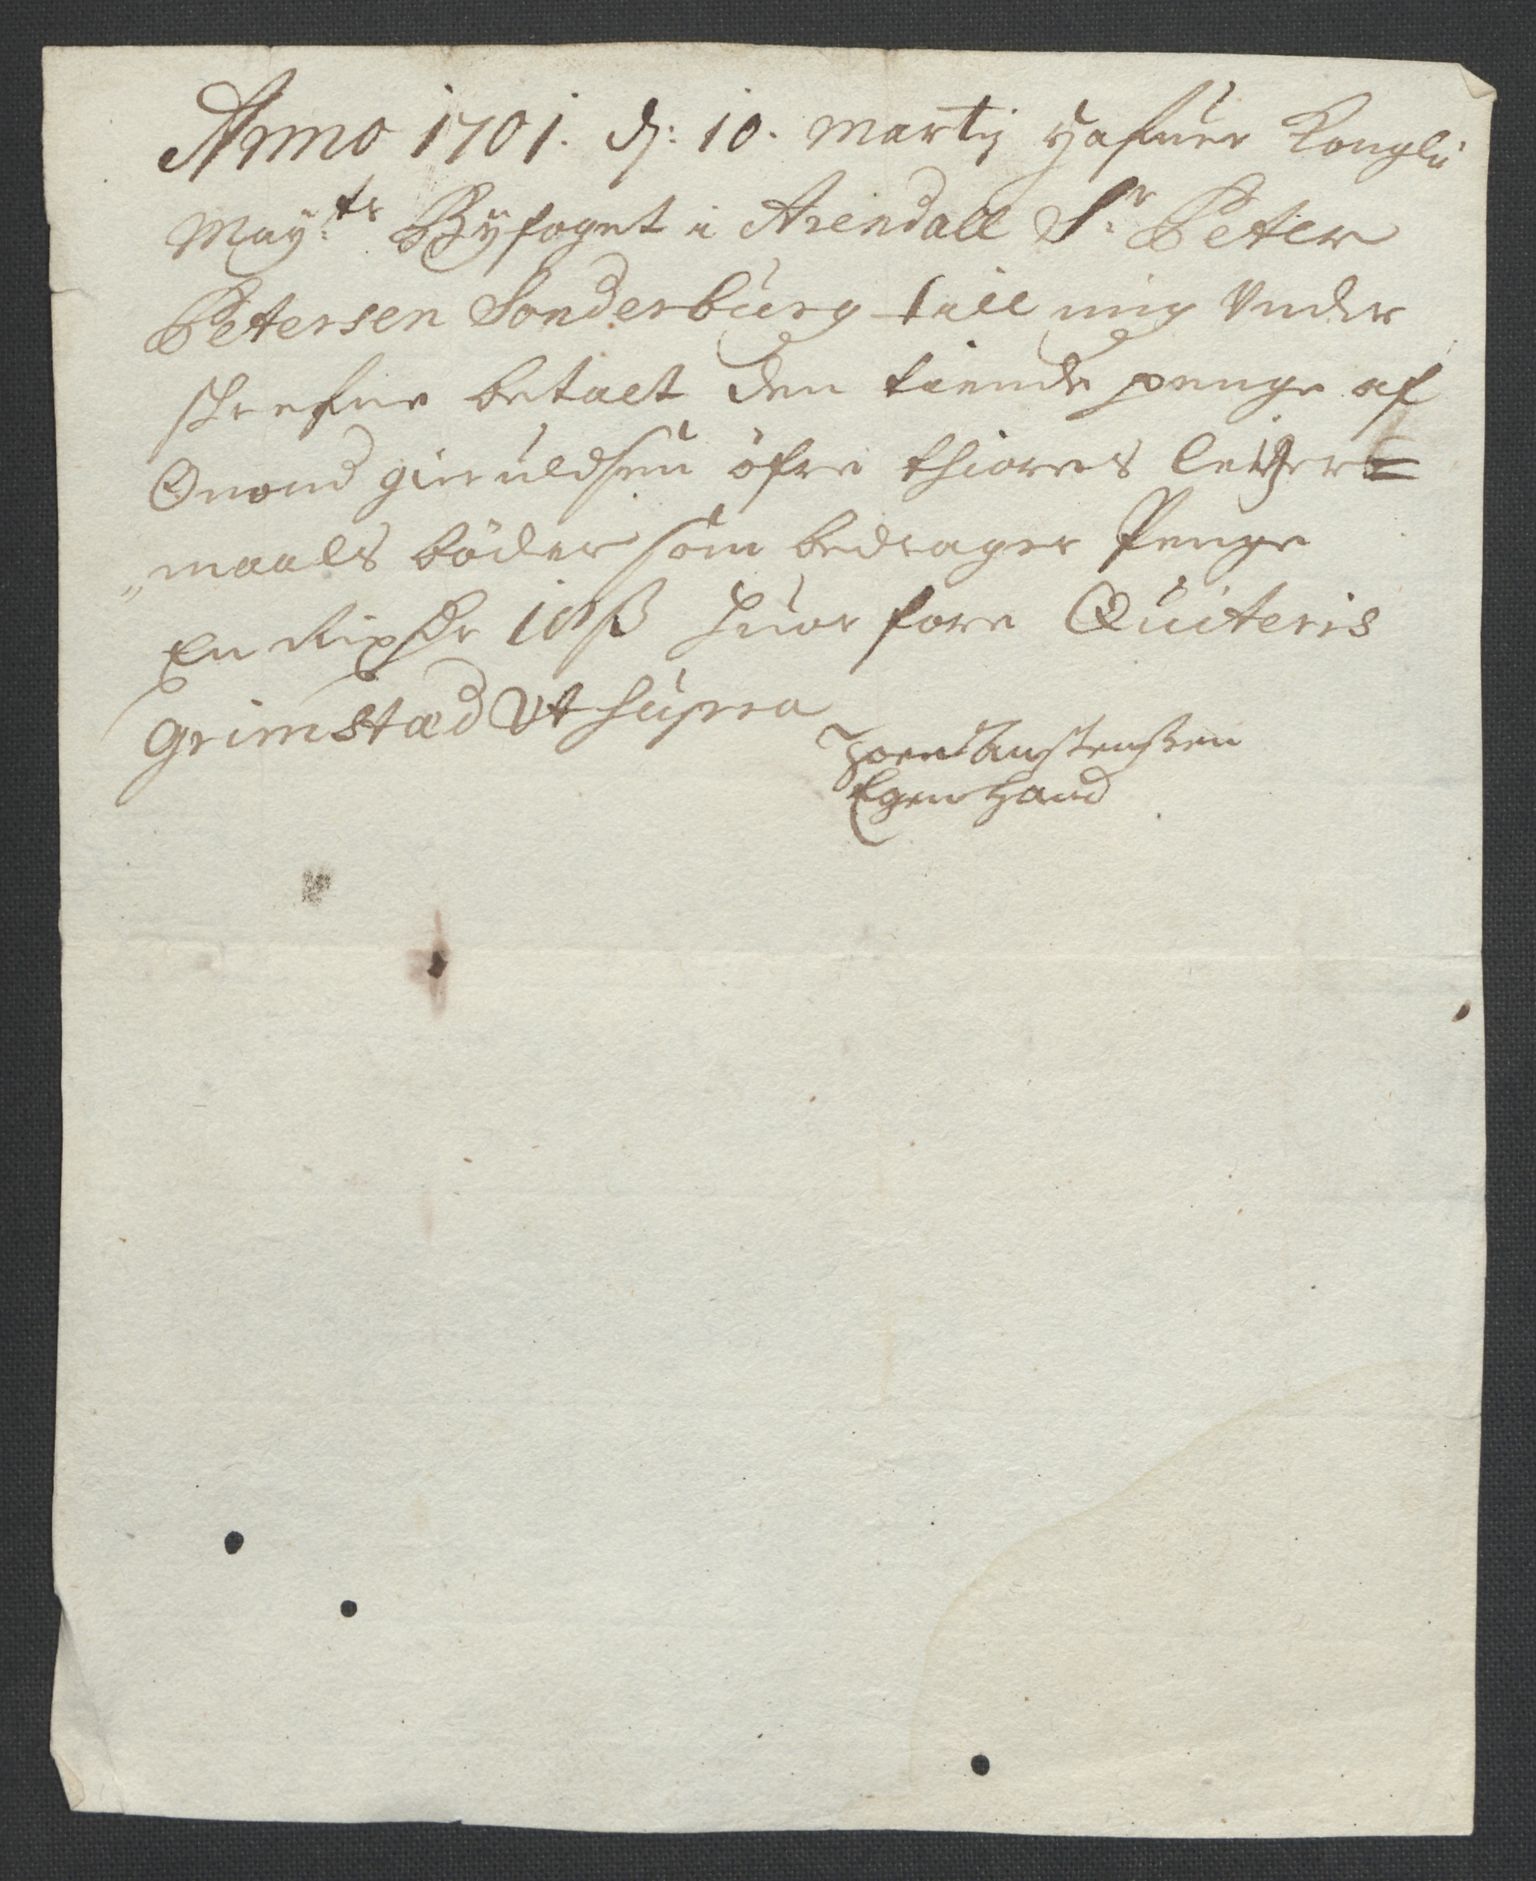 Anno 1701. d: 10. Martij Hafuer Kongli
May:ts Byfoget i Arendall Sr Peter
Petersen Sonderburg till mig Under
skrefne betalt den tiende penge af
Onond gieruldsen öfre thiorres leiger=
„maals böder som bedrager Penge
En Rixdr 10 ß huor fore Quiteris
Grimstæd Ut supra
Egen Hand